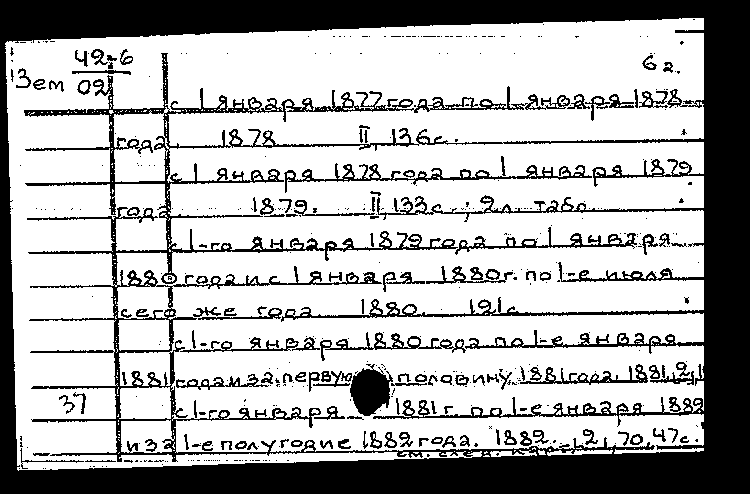 42-6
Зем 02
6 г.
с 1 января 1877 года по 1 января 1878
года. 1878 II, 136 с.
с 1 января 1878 года по 1 января 1879
года. 1879. II, 133 с.; 2 л. табл.
с 1-го января 1879 года по 1 января
1880 года и с 1 января 1880 г. по 1-е июля
сего же года 1880. 191 с.
с 1-го января 1880 года по 1-е января
1881 года и за первую половину 1881 года. 1881, 2,
с 1-го января 1881 г. по 1-е января 1882
37
и за 1-е полугодие 1882 года. 1882. 2, 70, 47 с.
см. след. карт.